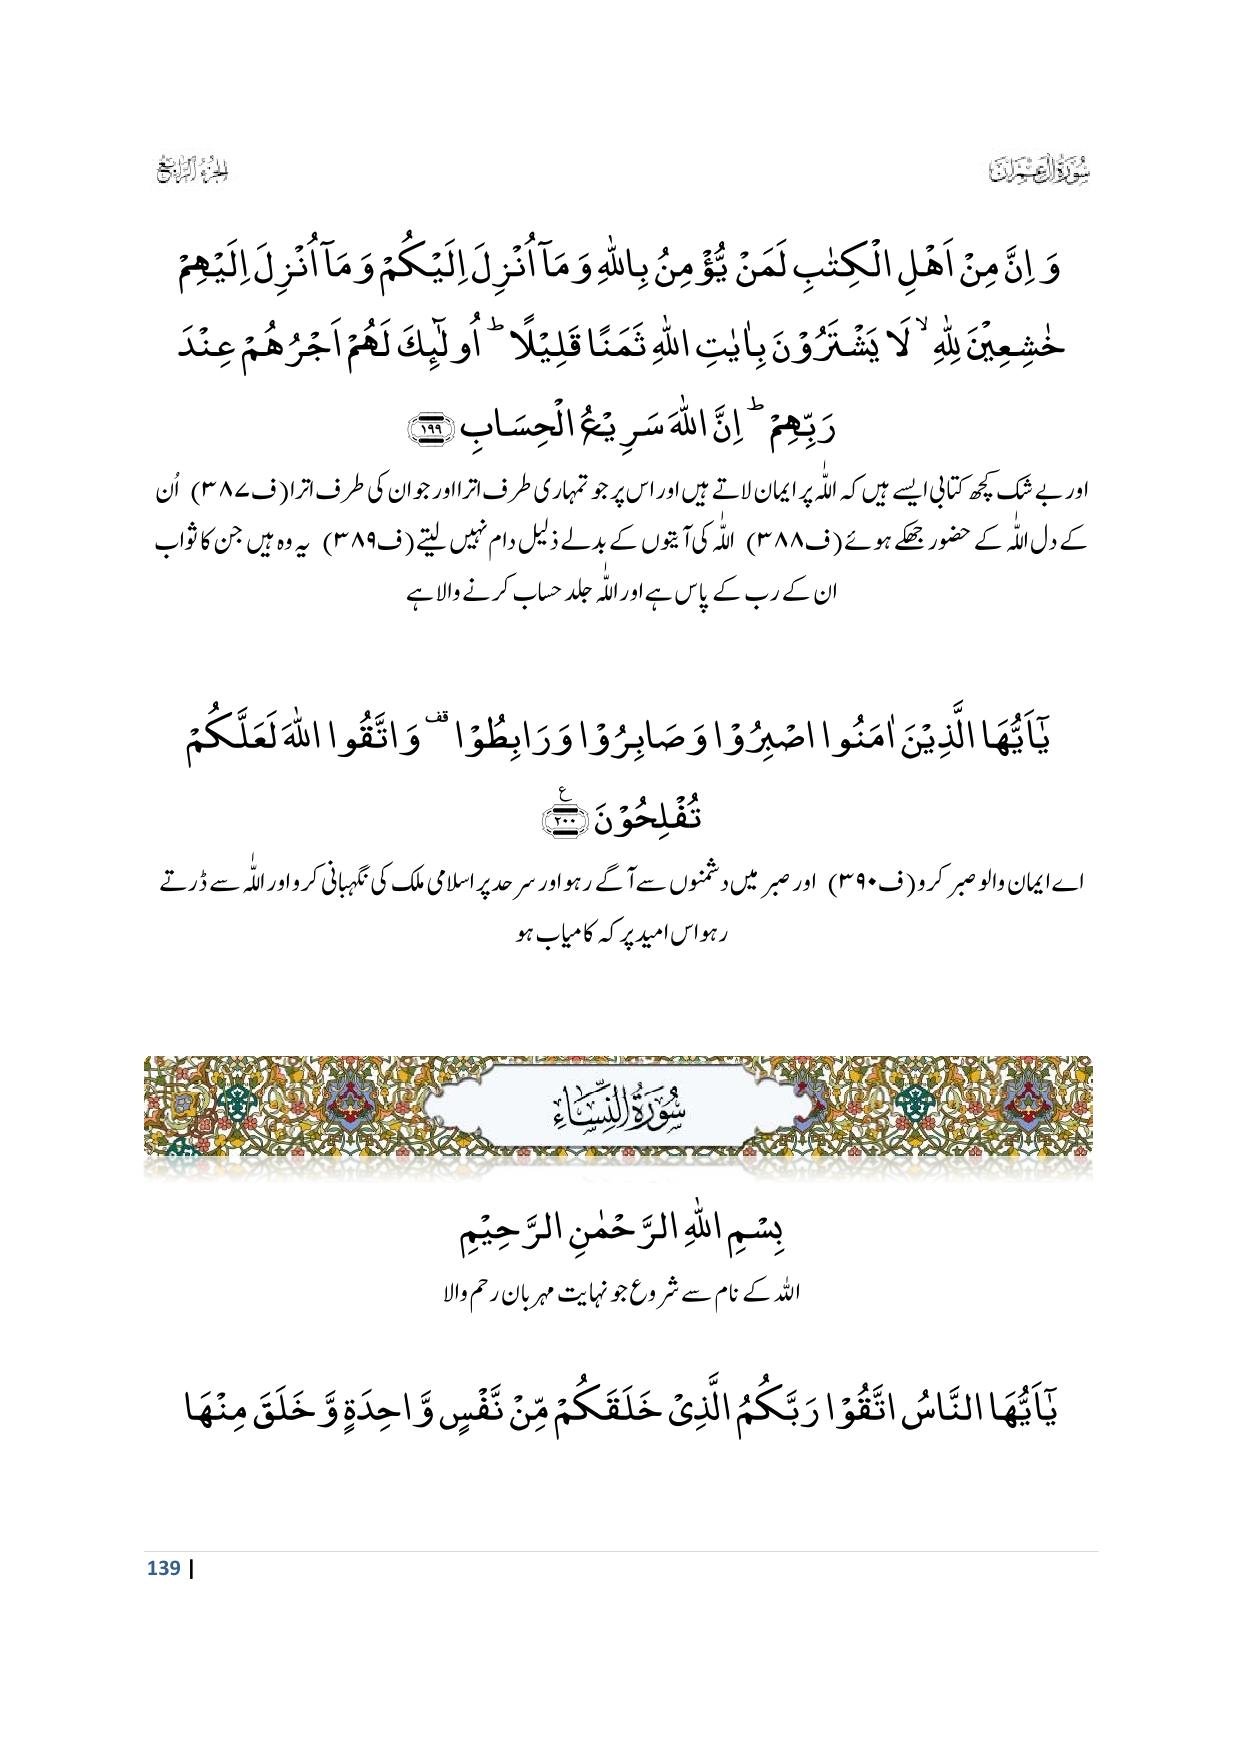 سُوۡرَۃُ اٰلِ عِمۡرٰن
الجزء الرابع
وَ اِنَّ مِنْ اَهْلِ الْكِتٰبِ لَمَنْ یُّؤْمِنُ بِاللّٰهِ وَ مَاۤ اُنْزِلَ اِلَیْكُمْ وَ مَاۤ اُنْزِلَ اِلَیْهِمْ
خٰشِعِیْنَ لِلّٰهِۙ لَا یَشْتَرُوْنَ بِاٰیٰتِ اللّٰهِ ثَمَنًا قَلِیْلًاؕ اُولٰٓىِٕكَ لَهُمْ اَجْرُهُمْ عِنْدَ
رَبِّهِمْؕ اِنَّ اللّٰهَ سَرِیْعُ الْحِسَابِ ﴿۱۹۹﴾
اور بے شک کچھ کتابی ایسے ہیں کہ اللّٰہ پر ایمان لاتے ہیں اور اس پر جو تمہاری طرف اترا اور جو ان کی طرف اترا (ف۳۸۷) اُن
کے دل اللّٰہ کے حضور جھکے ہوئے (ف۳۸۸) اللّٰہ کی آیتوں کے بدلے ذلیل دام نہیں لیتے (ف۳۸۹) یہ وہ ہیں جن کا ثواب
ان کے رب کے پاس ہے اور اللّٰہ جلد حساب کرنے والا ہے
یٰۤاَیُّهَا الَّذِیْنَ اٰمَنُوا اصْبِرُوْا وَ صَابِرُوْا وَ رَابِطُوْا۫ وَ اتَّقُوا اللّٰهَ لَعَلَّكُمْ
تُفْلِحُوْنَ ﴿۲۰۰﴾ ع
اے ایمان والو صبر کرو (ف۳۹۰) اور صبر میں دشمنوں سے آگے رہو اور سرحد پر اسلامی ملک کی نگہبانی کرو اور اللّٰہ سے ڈرتے
رہو اس امید پر کہ کامیاب ہو
سُوْرَةُ النِّسَاءِ
بِسْمِ اللّٰهِ الرَّحْمٰنِ الرَّحِیْمِ
اللّٰہ کے نام سے شروع جو نہایت مہربان رحم والا
یٰۤاَیُّهَا النَّاسُ اتَّقُوْا رَبَّكُمُ الَّذِیْ خَلَقَكُمْ مِّنْ نَّفْسٍ وَّاحِدَةٍ وَّ خَلَقَ مِنْهَا
139 |